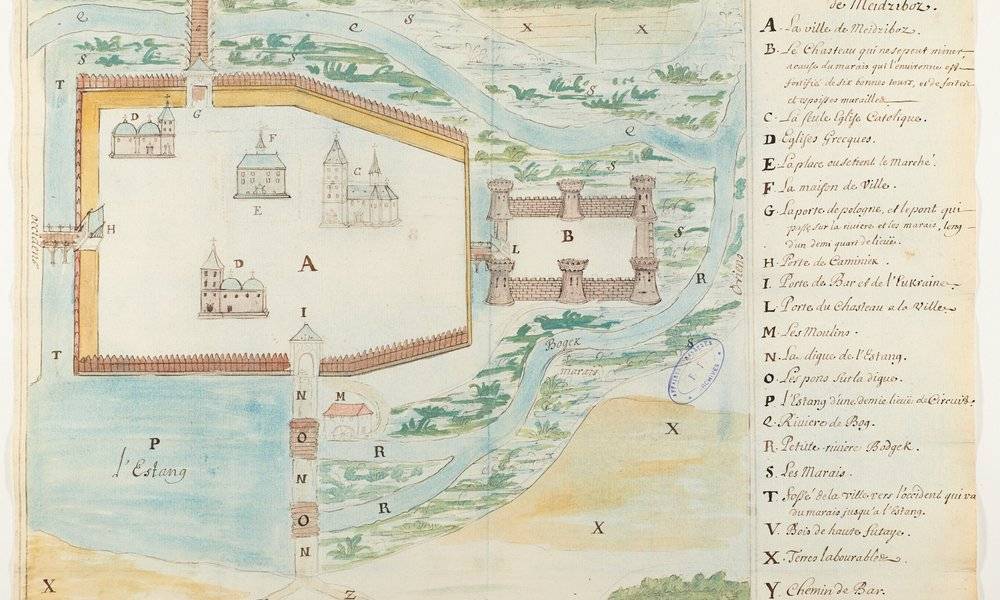 de Meidziboz.
A. La ville de Meidziboz.
B. Le Chasteau qui ne se peut miner
a cause du marais qui l'environne est
fortifié de six bonnes tours, et de fortes
et espoisses murailles
C. La seule Eglise Catolique.
D. Eglises Grecques.
E. La place ou se tient le Marché.
F. La maison de Ville.
G. La porte de pologne, et le pont qui
passe sur la riviere et les marais, long
d'un demi quart de lieuë.
H. Porte de Caminiek.
I. Porte de Bar et de l'Eukraine.
L. Porte du Chasteau a la Ville
M. Les Moulins.
N. La digue de l'Estang.
O. Les pons sur la digue.
P. l'Estang d'une demie lieuë de Circuit.
Q. Riviere de Bog.
R. Petite riviere Bodgek.
S. Les Marais.
T. Fossé de la ville vers l'occident qui va
du marais jusqu'a l'Estang.
V. Bois de haute futaye.
X. Terres labourables
Y. Chemin de Bar.
Q
C
S
X
X
S
T
S
G
D
Q
F
C
S
E
H
occident
B
S
L
D
A
R
Oriens
I
Bogek
marais
S
T
N
M
X
P
l'Estang
O
R
N
R
O
X
N
X
Z